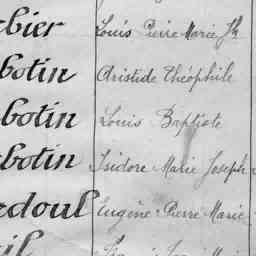 bier Louis Pierre Marie Jh
botin Aristide Théophile
botin Louis Baptiste
botin Isidore Marie Joseph
doul Eugène Pierre Marie